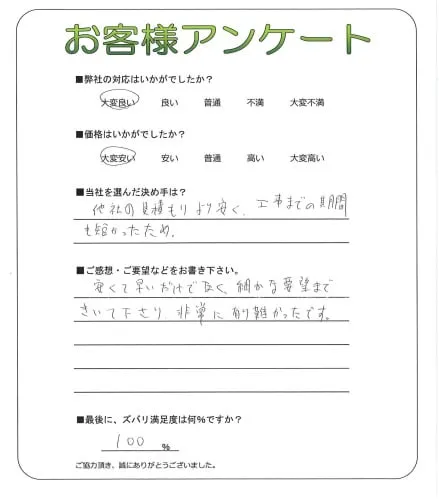 お客様アンケート
■弊社の対応はいかがでしたか？
大変良い 良い 普通 不満 大変不満
■価格はいかがでしたか？
大変安い 安い 普通 高い 大変高い
■当社を選んだ決め手は？
他社の見積もりより安く、工事までの期間
も短かったため。
■ご感想・ご要望などをお書き下さい。
安くて早いだけで良く、細かな要望まで
きいて下さり 非常に有り難かったです。
■最後に、ズバリ満足度は何％ですか？
100 ％
ご協力頂き、誠にありがとうございました。